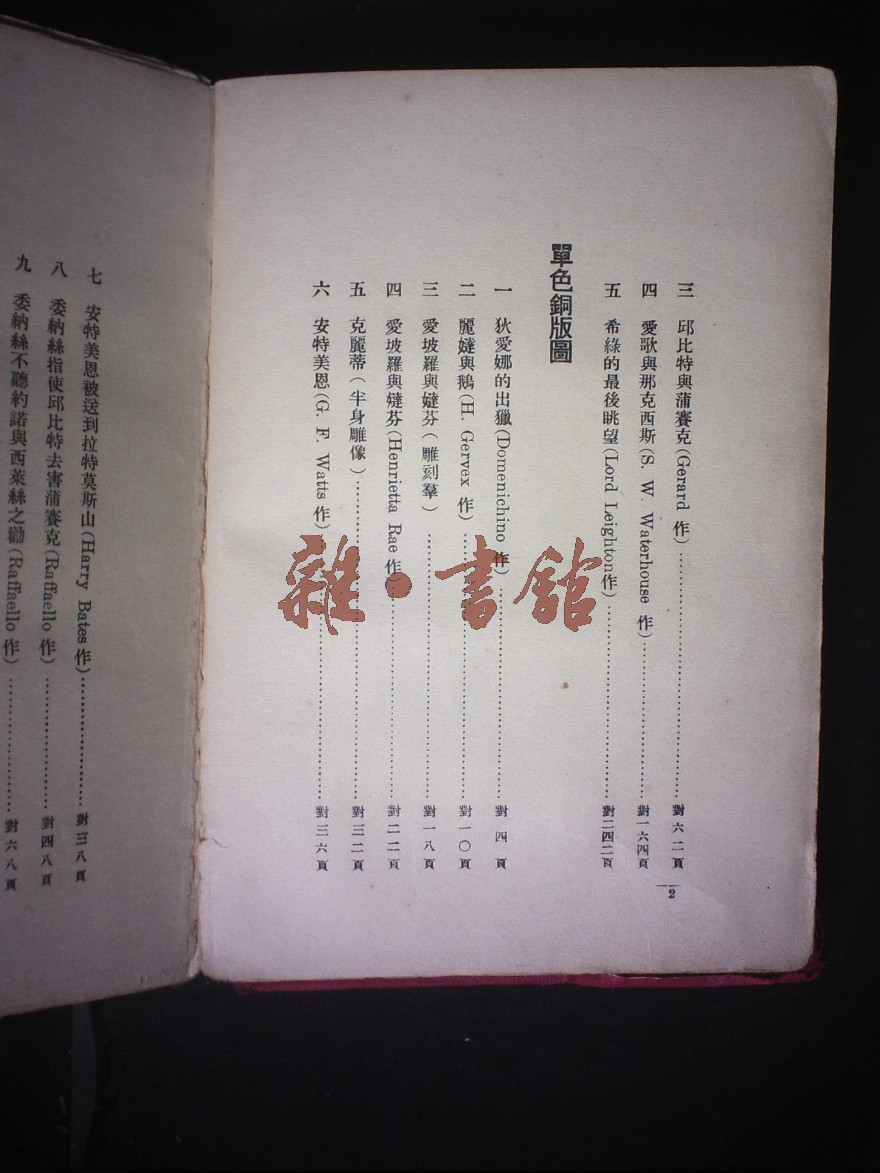 三 邱比特與蒲賽克(Gerard 作)……………………對六二頁
四 愛歌與那克西斯(S. W. Waterhouse 作)……………………對一六四頁
五 希綠的最後眺望(Lord Leighton作)……………………對二四二頁
單色銅版圖
一 狄愛娜的出獵(Domenichino 作)……………………對四頁
二 麗娃與鵝(H. Gervex 作)……………………對一〇頁
三 愛坡羅與㜓芬(雕刻羣)……………………對一八頁
四 愛坡羅與㜓芬(Henrietta Rae 作)……………………對二二頁
五 克麗蒂(半身雕像)……………………對三二頁
六 安特美恩(G. F. Watts 作)……………………對三六頁
2
七 安特美恩被送到拉特莫斯山(Harry Bates 作)……………………對三八頁
八 委納絲指使邱比特去害蒲賽克(Raffaello 作)……………………對四八頁
九 委納絲不聽約諾與西萊絲之勸(Raffaello 作)……………………對六八頁
雜·書館